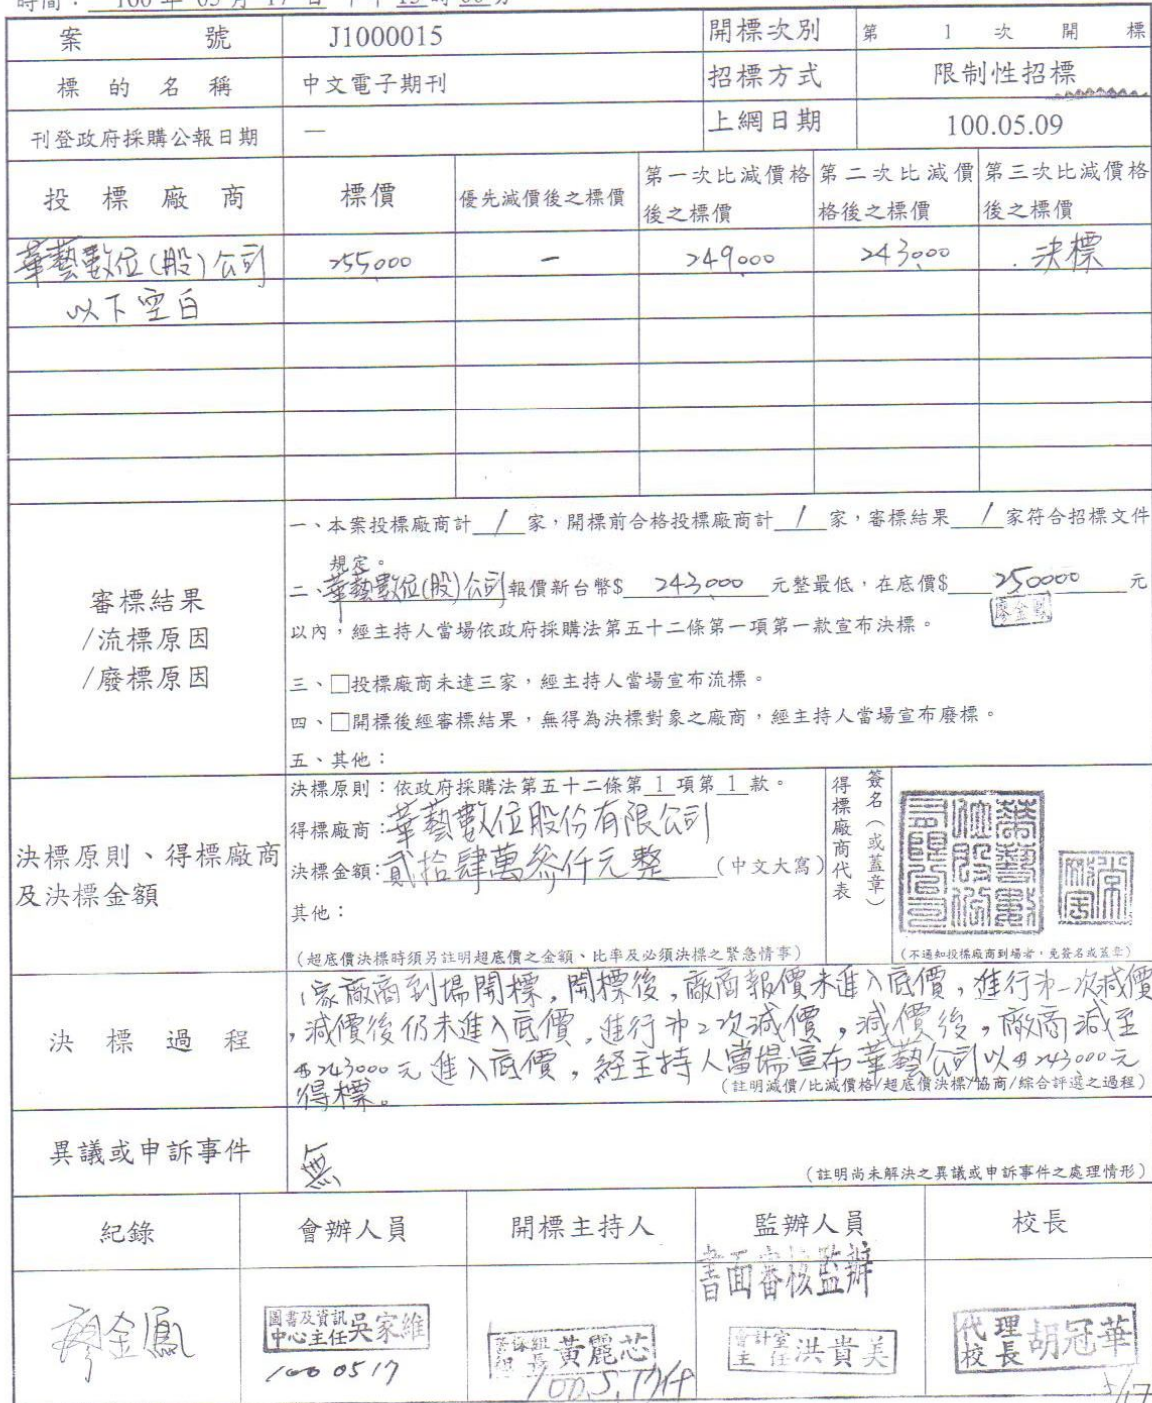 時間： 100 年 05 月 17 日 下午 15 時 00 分
案 號 J1000015 開標次別 第 1 次 開 標
標 的 名 稱 中文電子期刊 招標方式 限制性招標
刊登政府採購公報日期 — 上網日期 100.05.09
投 標 廠 商 標價 優先減價後之標價 第一次比減價格後之標價 第二次比減價格後之標價 第三次比減價格後之標價
華藝數位(股)公司 255000 - 249000 243000 決標
以下空白
審標結果
/流標原因
/廢標原因
一、本案投標廠商計 1 家，開標前合格投標廠商計 1 家，審標結果 1 家符合招標文件
規定。
二、華藝數位(股)公司報價新台幣$ 243000 元整最低，在底價$ 250000 元
以內，經主持人當場依政府採購法第五十二條第一項第一款宣布決標。
三、□投標廠商未達三家，經主持人當場宣布流標。
四、□開標後經審標結果，無得為決標對象之廠商，經主持人當場宣布廢標。
五、其他：
決標原則、得標廠商
及決標金額
決標原則：依政府採購法第五十二條第 1 項第 1 款。
得標廠商：華藝數位股份有限公司
決標金額：貳拾肆萬參仟元整 (中文大寫)
其他：
(超底價決標時須另註明超底價之金額、比率及必須決標之緊急情事)
得標廠商代表
簽名(或蓋章)
(不通知投標廠商到場者，免簽名或蓋章)
決 標 過 程
1家廠商到場開標，開標後，廠商報價未進入底價，進行第一次減價
，減價後仍未進入底價，進行第2次減價，減價後，廠商減至
$243000元進入底價，經主持人當場宣布華藝公司以$243000元
得標。
(註明減價/比減價格/超底價決標/協商/綜合評選之過程)
異議或申訴事件 無
(註明尚未解決之異議或申訴事件之處理情形)
紀錄 會辦人員 開標主持人 監辦人員 校長
書面審核監辦
廖金鳳
圖書及資訊
中心主任 吳家維
100 0517
黃麗芯
100.5.17
會計室
主任 洪貴美
代理
校長 胡冠華
5/17